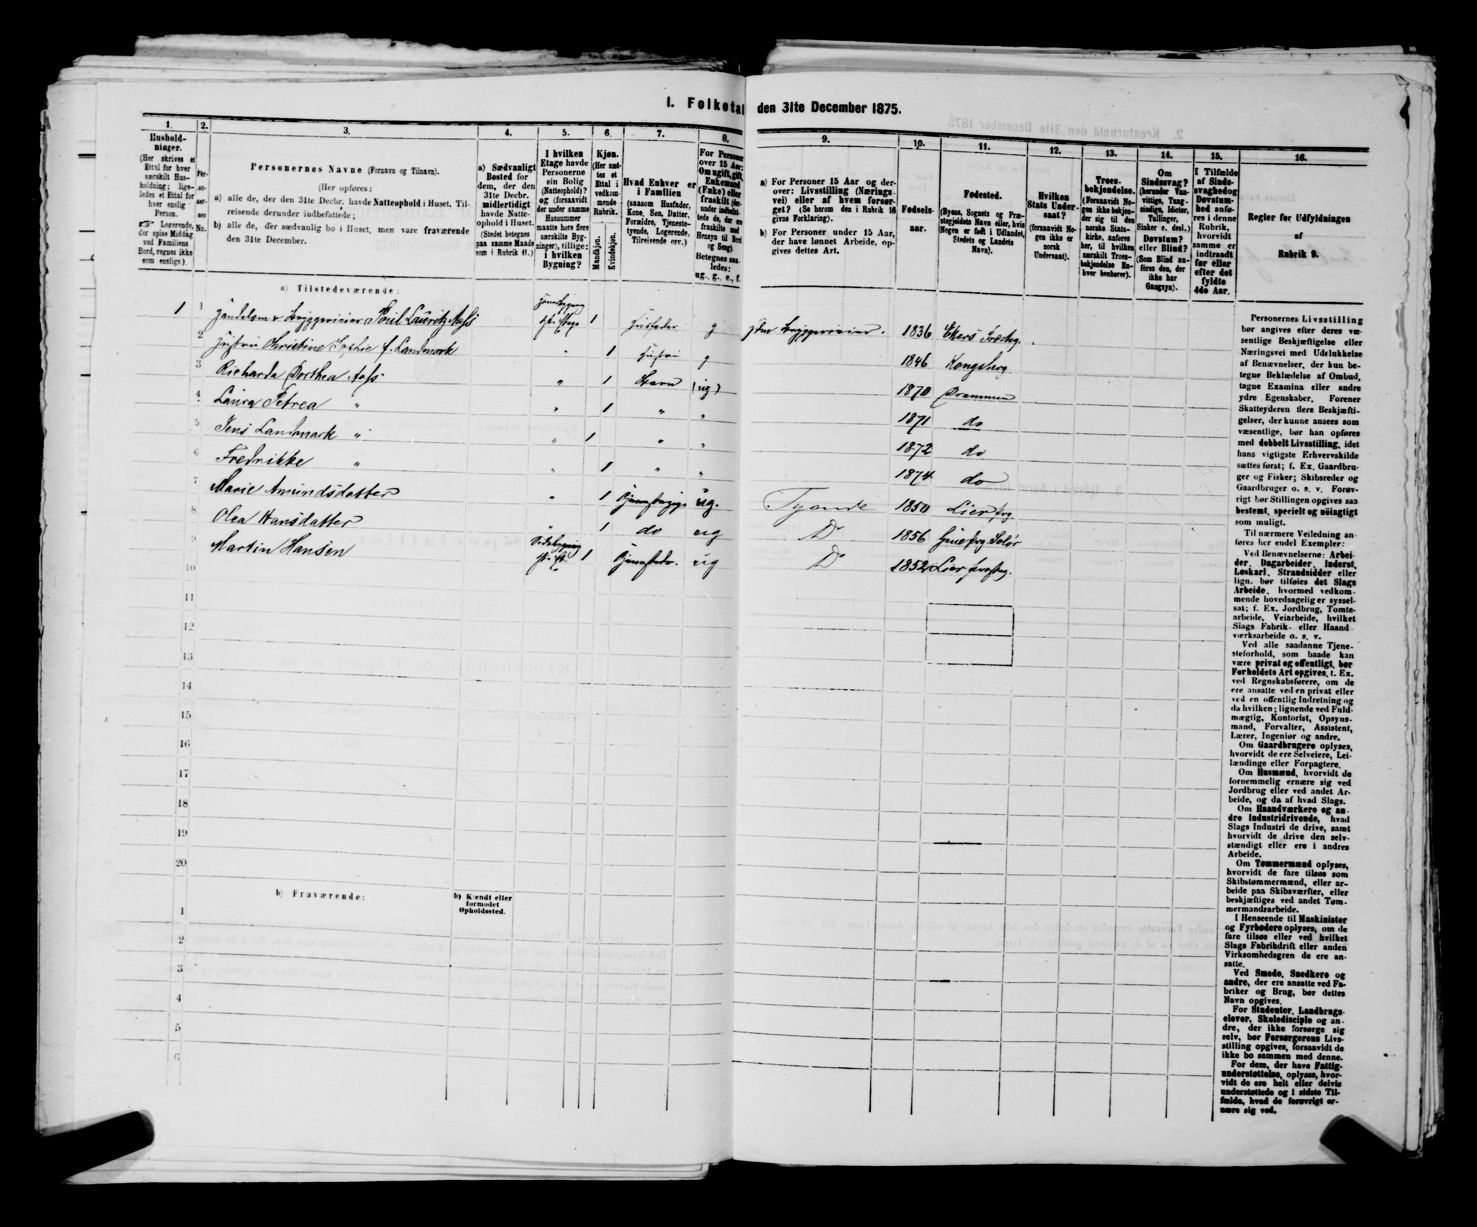 I. Folketal den 31te December 1875.
1. 2. 3. 4. 5. 6. 7. 8. 9. 10. 11. 12. 13. 14. 15. 16.
Hushold-
ninger.
(Her skrives et
Ettal for hver
særskilt Hus-
holdning; lige-
ledes et Ettal for
hver enslig
Person.
Logerende,
der spise Middag
ved Familiens
Bord, regnes ikke
som enslige).
Per-
so-
ner-
nes
No.
Personernes Navne (Fornavn og Tilnavn).
(Her opføres:
a) alle de, der den 31te Decbr. havde Natteophold i Huset, Til-
reisende derunder indbefattede;
b) alle de, der sædvanlig bo i Huset, men vare fraværende
den 31te December.
a) Sædvanligt
Bosted for
dem, der den
31te Decbr.
midlertidigt
havde Natte-
ophold i Huset.
(Stedet betegnes
paa samme Maade
som i Rubrik 11.)
I hvilken
Etage havde
Personerne
sin Bolig
(Natteophold)?
og (forsaavidt
der under samme
Husnummer
maatte høre flere
særskilte Byg-
ninger), tillige:
i hvilken
Bygning?
Kjøn.
(Her sæt-
tes et
Ettal i
vedkom-
mende
Rubrik.
Mandkjøn.
Kvindekjøn.
Hvad Enhver er
i Familien
(saasom Husfader,
Kone, Søn, Datter,
Forældre, Tjeneste-
tyende, Logerende,
Tilreisende osv.)
For Personer
over 15 Aar:
Om ugift, gift,
Enkemand
(Enke) eller
fraskilt
Betegnes saa-
ledes:
ug., g., e., f.
a) For Personer 15 Aar og der-
over: Livsstilling (Nærings-
vei) eller af hvem forsør-
get? (Se herom den i Rubrik 16
givne Forklaring).
b) For Personer under 15 Aar,
der have lønnet Arbeide, op-
gives dettes Art.
Fødsels-
aar.
Fødested.
(Byens, Sognets og Præ-
stegjeldets Navn eller, hvis
Nogen er født i Udlandet,
Stedets og Landets
Navn).
Hvilken
Stats Under-
saat?
(forsaavidt No-
gen ikke er
norsk
Undersaat).
Troes-
bekjendelse.
(Forsaavidt No-
gen ikke bekjen-
der sig til den
norske Stats-
kirke, anføres
her, til hvilken
særskilt Troes-
bekjendelse En-
hver henhører).
Om
Sindssvag?
(herunder Van-
vittige, Tung-
sindige, Idioter,
Tullinger,
Sinker o. desl.)
Døvstum?
eller Blind?
(Som Blind an-
føres den, der
ikke har
Gangsyn).
I Tilfælde
af Sinds-
svaghed og
Døvstum-
hed anfø-
res i denne
Rubrik,
hvorvidt
samme er
indtraadt
før eller
efter det
fyldte
4de Aar.
Regler for Udfyldningen
af
Rubrik 9.
a) Tilstedeværende:
1 1 Poul Lauritz Aass 1 Husfader g 1836
2 Hustru Christine Sophie f. Landmark " 1 Hustru g 1846 Kongsberg
3 Richarda Dorthea Aass " 1 Barn (ug) 1870 Drammen
4 Laura Petrea " " 1 " " 1871 do
5 Jens Landmark " " 1 " " 1872 do
6 Fredrikke " " 1 " " 1874 do
7 Marie Amundsdatter " 1 ug. Tyende 1850 Lier
8 Olea Hansdatter " 1 do ug Do 1856
9 Martin Hansen 1 ug Do 1852 Lier
10
11
12
13
14
15
16
17
18
19
20
b) Fraværende:
b) Kjendt eller
formodet
Opholdssted.
1
2
3
4
5
6
Personernes Livsstilling
bør angives efter deres væ-
sentlige Beskjæftigelse eller
Næringsvei med Udelukkelse
af Benævnelser, der kun be-
tegne Beklædelse af Ombud,
tagne Examina eller andre
ydre Egenskaber. Forener
Skatteyderen flere Beskjæfti-
gelser, der kunne ansees som
væsentlige, bør han opføres
med dobbelt Livsstilling, idet
hans vigtigste Erhvervskilde
sættes først; f. Ex. Gaardbru-
ger og Fisker; Skibsreder og
Gaardbruger o. s. v. Forøv-
rigt bør Stillingen opgives saa
bestemt, specielt og nøiagtigt
som muligt.
Til nærmere Veiledning an-
føres her endel Exempler:
Ved Benævnelserne: Arbei-
der, Dagarbeider, Inderst,
Løskarl, Strandsidder eller
lign. bør tilføies det Slags
Arbeide, hvormed vedkom-
mende hovedsagelig er syssel-
sat; f. Ex. Jordbrug, Tomte-
arbeide, Veiarbeide, hvilket
Slags Fabrik- eller Haand-
værksarbeide o. s. v.
Ved alle saadanne Tjene-
steforhold, som baade kan
være privat og offentligt, bør
Forholdets Art opgives, t. Ex.
ved Regnskabsførere, om de
ere ansatte ved en privat eller
ved en offentlig Indretning og
da hvilken; lignende ved Fuld-
mægtig, Kontorist, Opsyns-
mand, Forvalter, Assistent,
Lærer, Ingeniør og andre.
Om Gaardbrugere oplyses,
hvorvidt de ere Selveiere, Lei-
lændinge eller Forpagtere.
Om Husmænd, hvorvidt de
fornemmelig ernære sig ved
Jordbrug eller ved andet Ar-
beide, og da af hvad Slags.
Om Haandværkere og an-
dre Industridrivende, hvad
Slags Industri de drive, samt
hvorvidt de drive den selv-
stændigt eller ere i andres
Arbeide.
Om Tømmermænd oplyses,
hvorvidt de fare tilsøs som
Skibstømmermænd, eller ar-
beide paa Skibsværfter, eller
beskjæftiges ved andet Tøm-
mermandsarbeide.
I Henseende til Maskinister
og Fyrbødere oplyses, om de
fare tilsøs eller ved hvilket
Slags Fabrikdrift eller anden
Virksomhedsgren de ere an-
satte.
Ved Smede, Snedkere og
andre, der ere ansatte ved Fa-
briker og Brug, bør dettes
Navn opgives.
For Studenter, Landbrugs-
elever, Skoledisciple og an-
dre, der ikke forsørge sig
selv, bør Forsørgerens Livs-
stilling opgives, forsaavidt de
ikke bo sammen med denne.
For dem, der have Fattig-
understøttelse, oplyses, hvor-
vidt de ere helt eller delvis
understøttede og i sidste Til-
fælde, hvad de forøvrigt er-
nære sig ved.